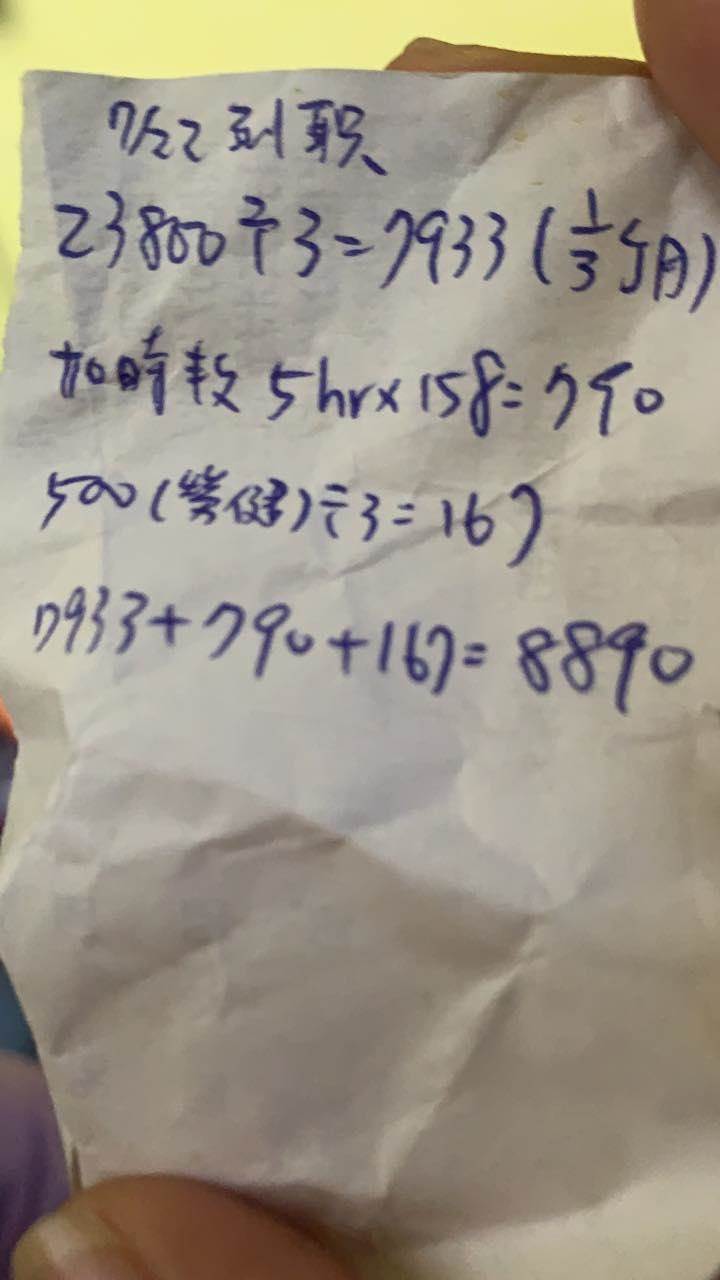 7/22 到职、
23800÷3=7933(1/3个月)
加時数 5hr×158=790
500(劳健)÷3=167
7933+790+167=8890